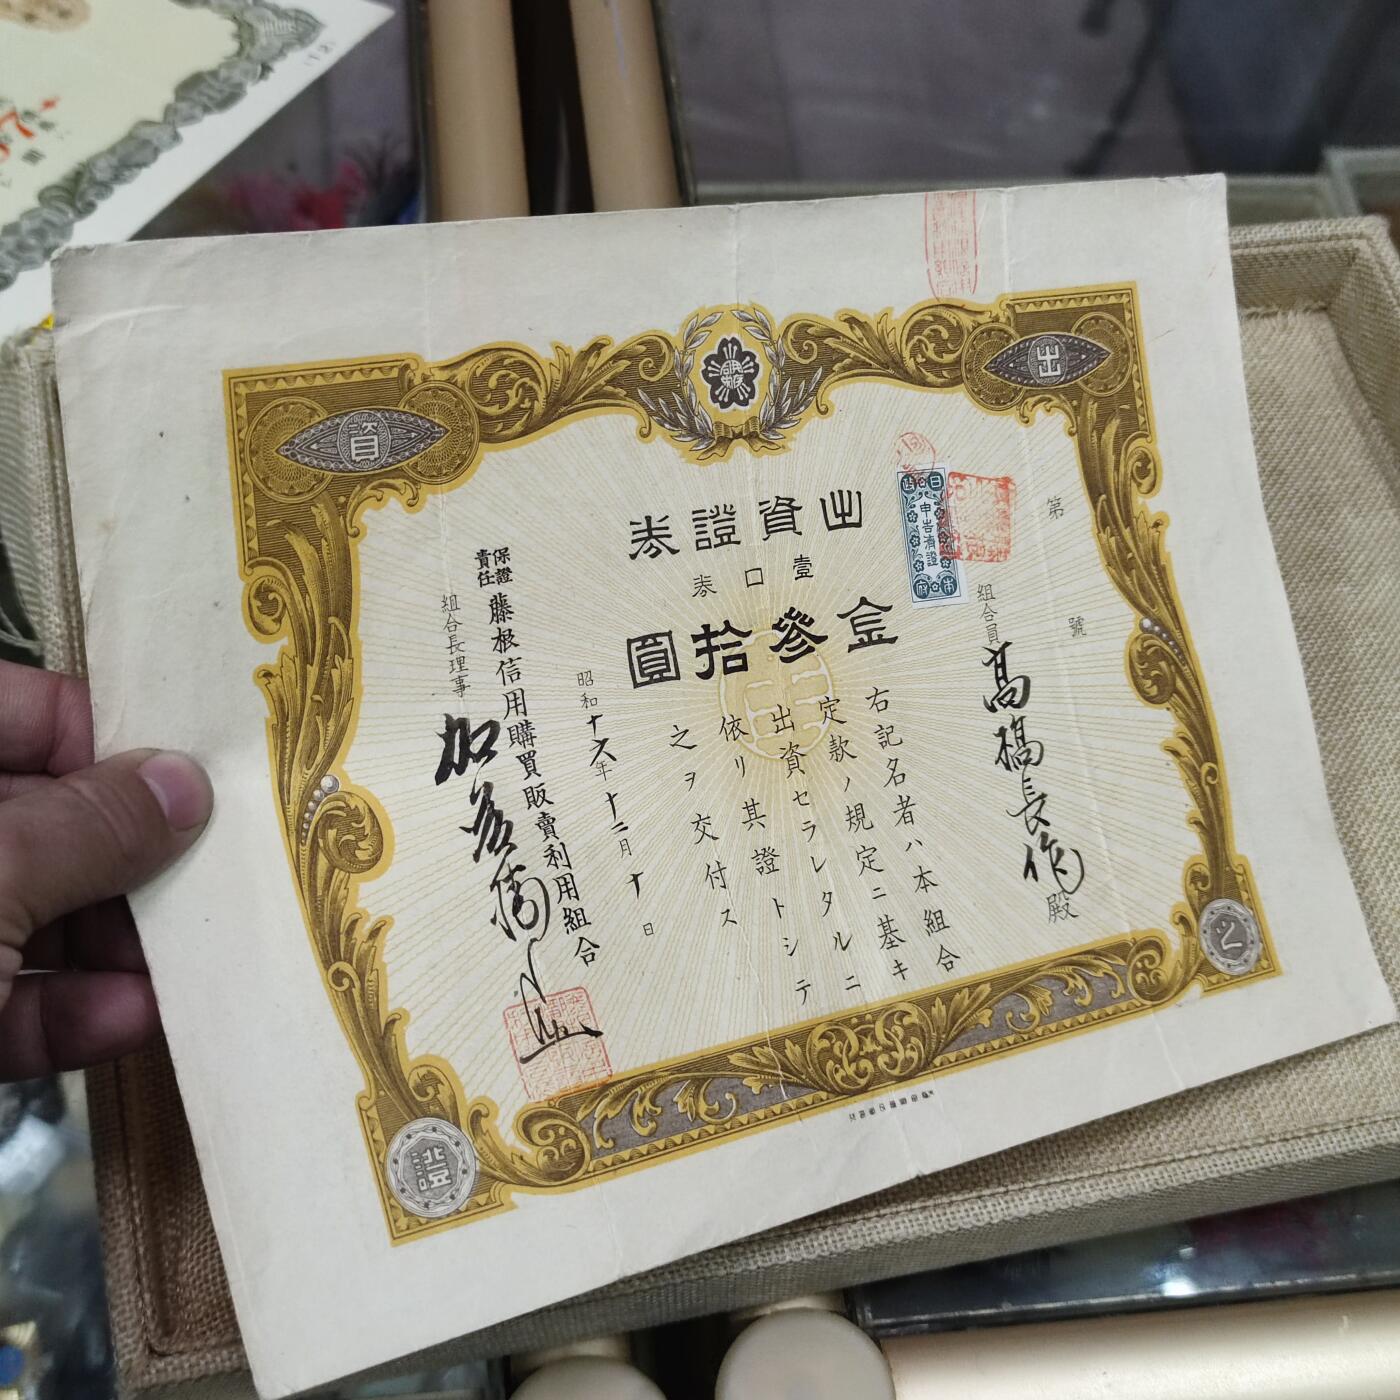 出資證券
壹口券
金參拾圓
第 號
組合員 高橋長作 殿
右記名者ハ本組合
定款ノ規定ニ基キ
出資セラレタルニ
依リ其證トシテ
之ヲ交付ス
昭和十六年十二月十日
保證責任 藤根信用購買販賣利用組合
組合長理事
出
資
證
之
日本政府
申告濟證